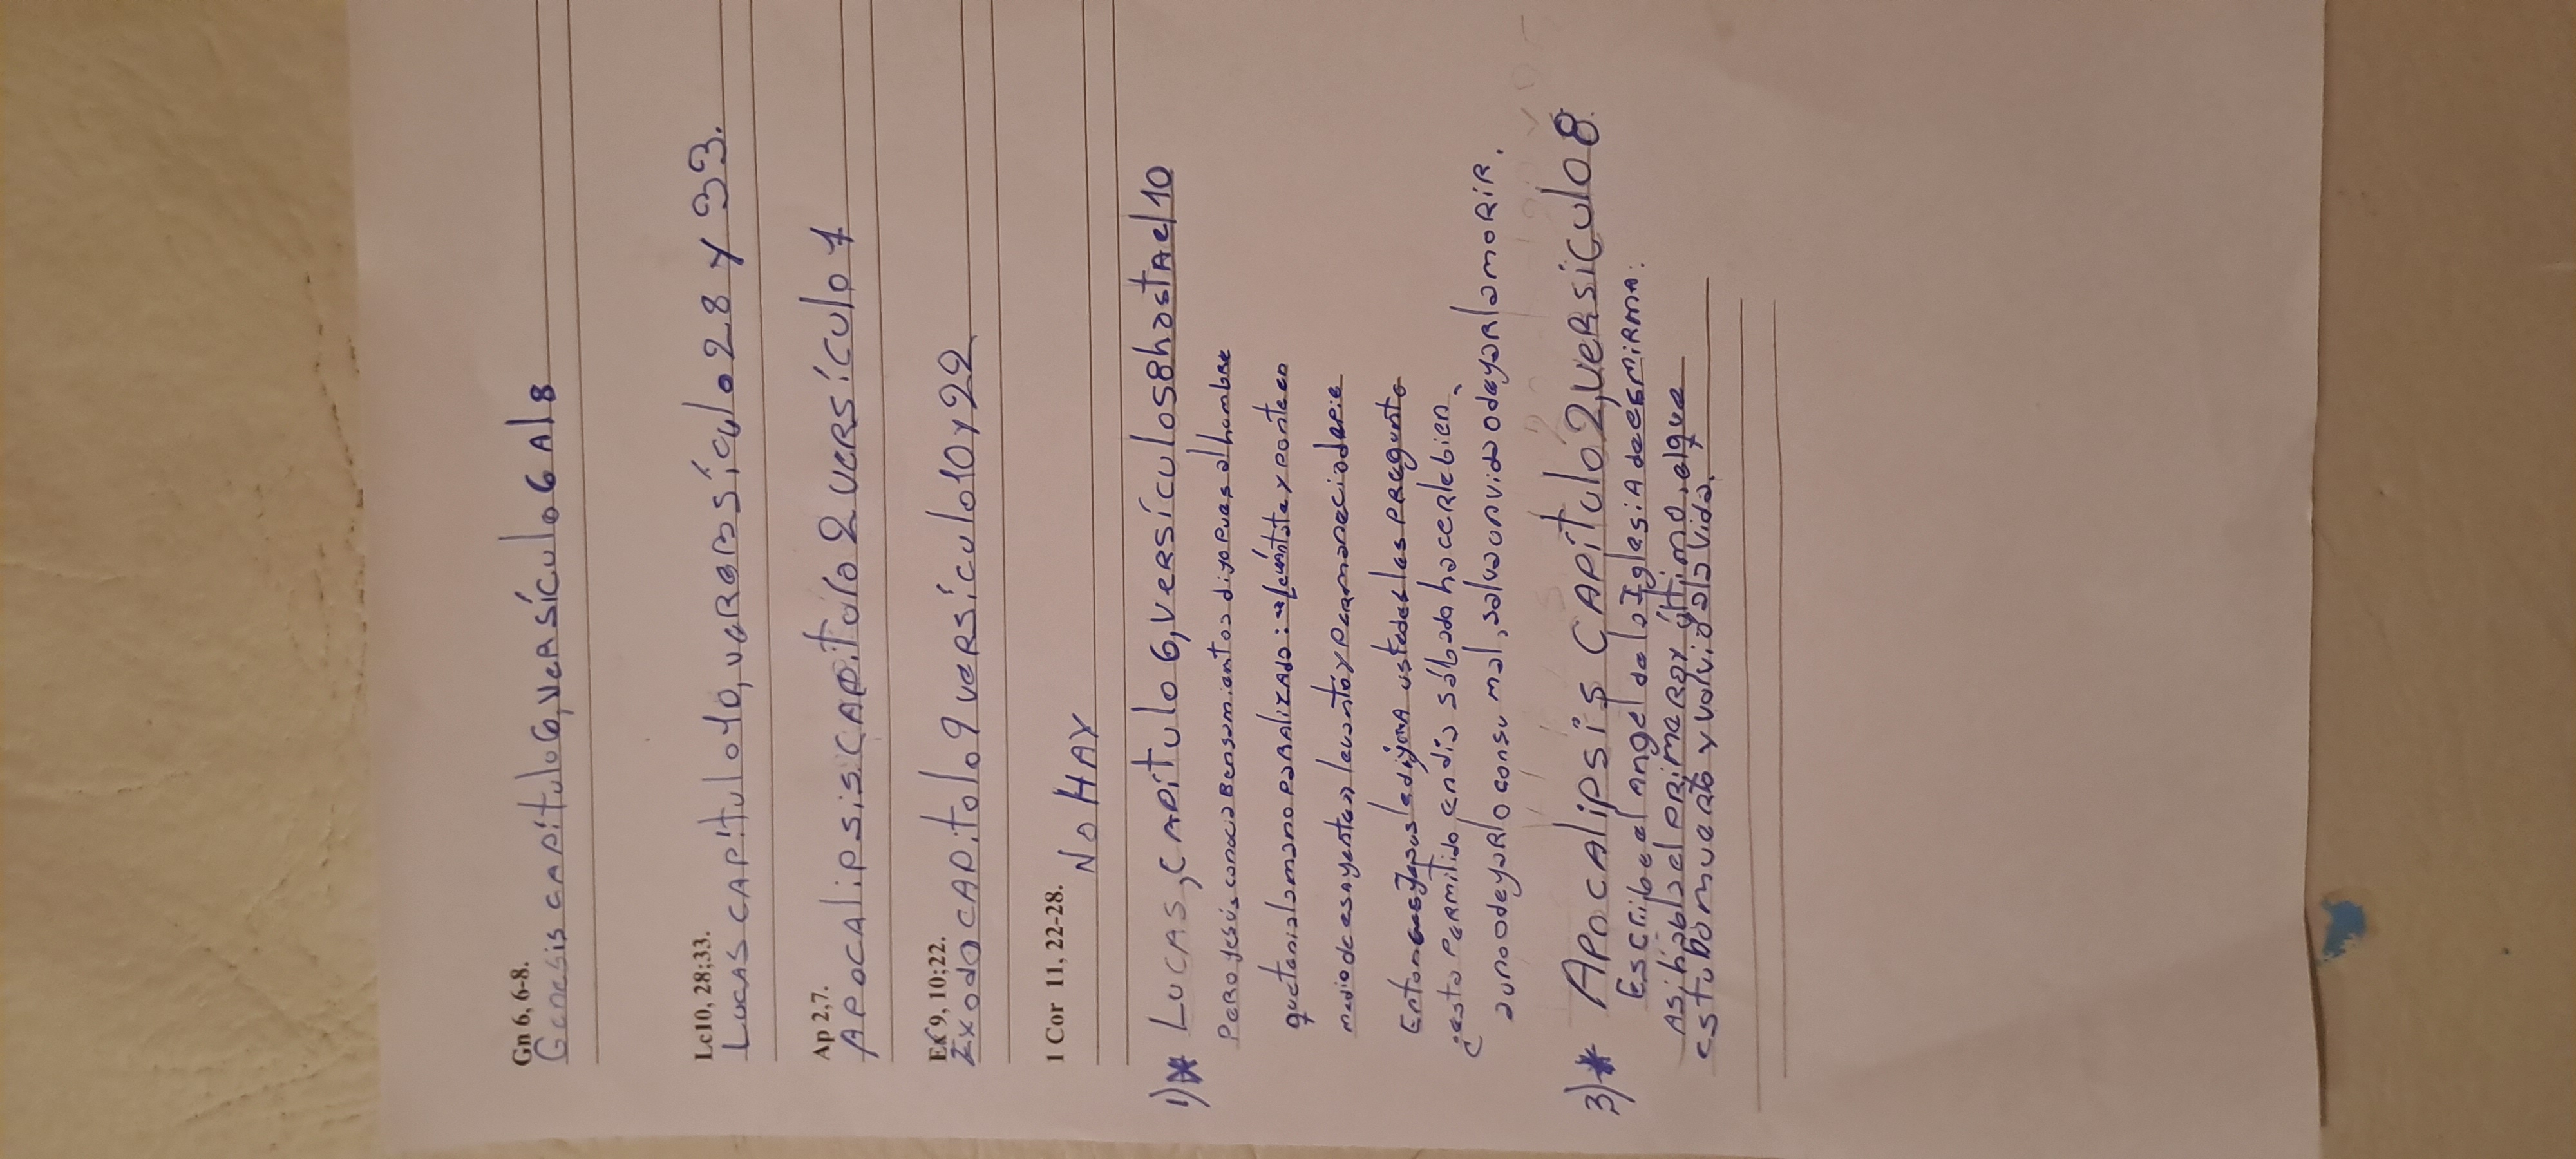 Gn 6, 6-8.
Genesis CAPítulo 6, VeRSículo 6 Al 8
Lc10, 28;33.
LucAS CAPítulo 10, veRsículo 28 y 33.
Ap 2,7.
APOCAlipsis CAPítulo 2 veRSículo 7
Ex 9, 10;22.
Exodo CAPitolo 9 veRSículo 10 y 22
1 Cor 11, 22-28.
No HAY
1)* LUCAS, CAPítulo 6, veRSículos 8 hastA el 10
PeRo Jesús conocia sus Pensamientos dijo Pues al hombre
que tenia la mano PaRAlizAda: "levántate y ponte en
medio de esa gente" se levantó y PeRmaneció de Pie
Entonces Jesus le dijo: "A ustedes les PRegunto
¿esta PeRmitido en dia sábado haceRle bien,
a uno o dejaRlo con su mal, salva un vida o dejaRla moRiR.
3)* APOCAlipsis CAPítulo 2, veRSiculo 8.
Escribe al Angel de la IglesiA de EsmiRnA:
Asi habla el PRimeRo y último, el que
estubo mueRto y volvio a la vida.